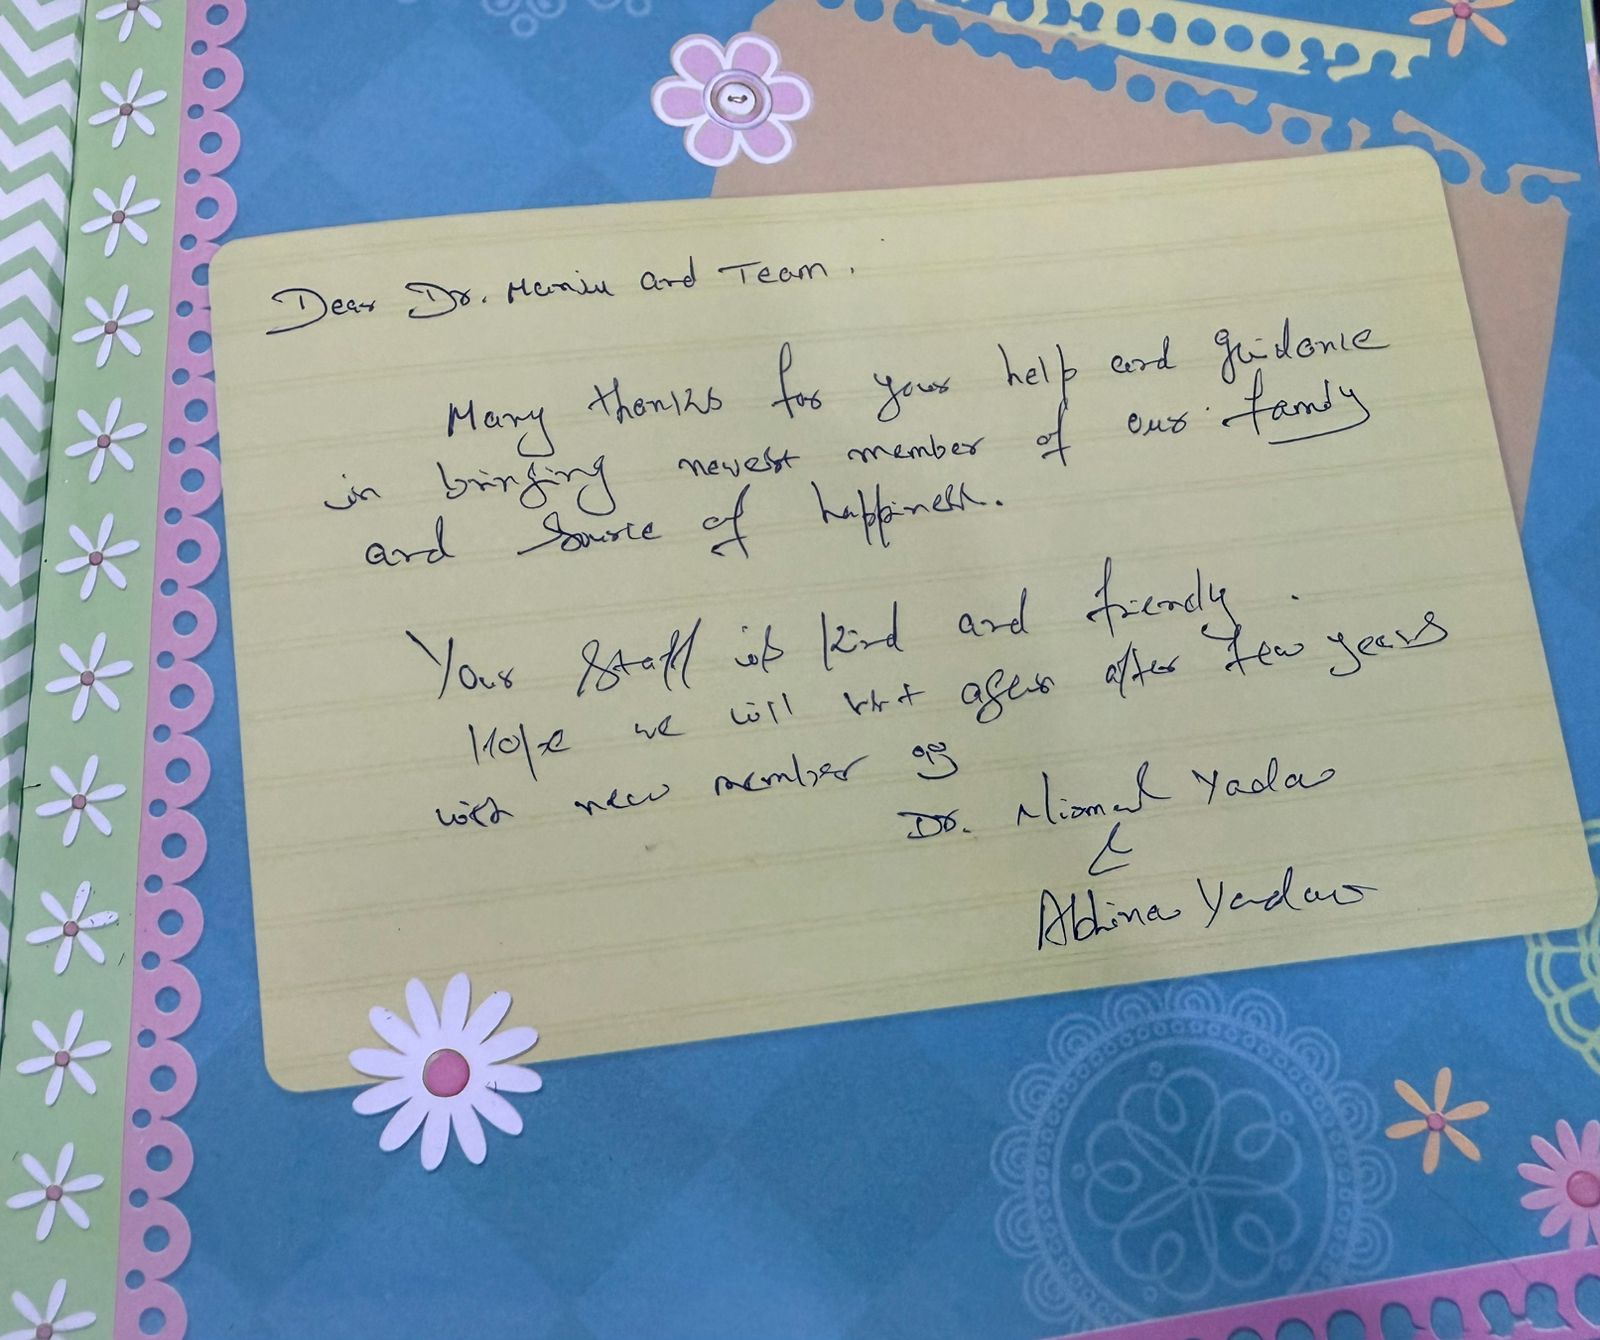 Dear Dr. Manju and Team.
Many thanks for your help and guidance
in bringing newest member of our family
and source of happiness.
Your staff is kind and friendly.
Hope we will visit again after few years
with new member
Dr. Nirmal Yadav
&
Abhinav Yadav